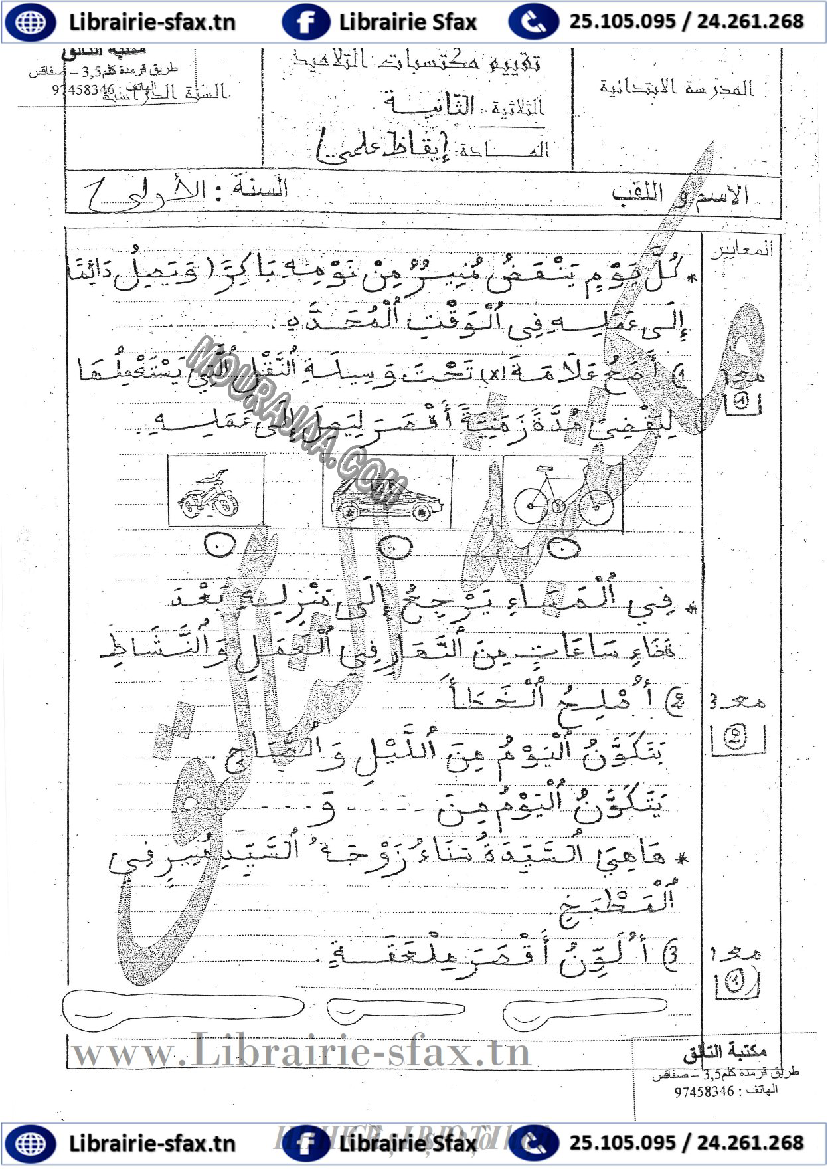 Librairie-sfax.tn Librairie Sfax 25.105.095 / 24.261.268
مكتبة التألق
طريق قرمدة كلم 3,5 - صفاقس
الهاتف : 97458346
المدرسة الابتدائية
تقييم مكتسبات التلاميذ
السنة الدراسية
الثلاثية : الثانية
المادة : إيقاظ علمي
الاسم و اللقب
السنة : الأولى
المعايير
* كُلَّ يَوْمٍ يَنْهَضُ مُنِيرٌ مِنْ نَوْمِهِ بَاكِرًا وَيَصِلُ دَائِمًا
إِلَى عَمَلِهِ فِي الْوَقْتِ الْمُحَدَّدِ.
مع 1
1) أَضَعُ عَلَامَةَ (x) تَحْتَ وَسِيلَةِ النَّقْلِ الَّتِي يَسْتَعْمِلُهَا
لِيَقْضِيَ مُدَّةً زَمَنِيَّةً أَقْصَرَ لِيَصِلَ إِلَى عَمَلِهِ.
1
MOURAJAA.COM
* فِي الْمَسَاءِ يَرْجِعُ إِلَى مَنْزِلِهِ بَعْدَ
قَضَاءِ سَاعَاتٍ مِنَ النَّهَارِ فِي الْعَمَلِ وَالنَّشَاطِ
مع 3
2) أُصْلِحُ الْخَطَأَ
2
يَتَكَوَّنُ الْيَوْمُ مِنَ اللَّيْلِ وَالصَّبَاحِ
يَتَكَوَّنُ الْيَوْمُ مِنَ ...... وَ ......
* هَاهِيَ السَّيِّدَةُ سَنَاءُ زَوْجَةُ السَّيِّدِ مُنِيرٍ فِي
الْمَطْبَخِ
مع 1
3) أُلَوِّنُ أَقْصَرَ مِلْعَقَةٍ.
1
www.Librairie-sfax.tn
مكتبة التألق
طريق قرمدة كلم 3,5 - صفاقس
الهاتف : 97458346
Librairie-sfax.tn Librairie Sfax 25.105.095 / 24.261.268